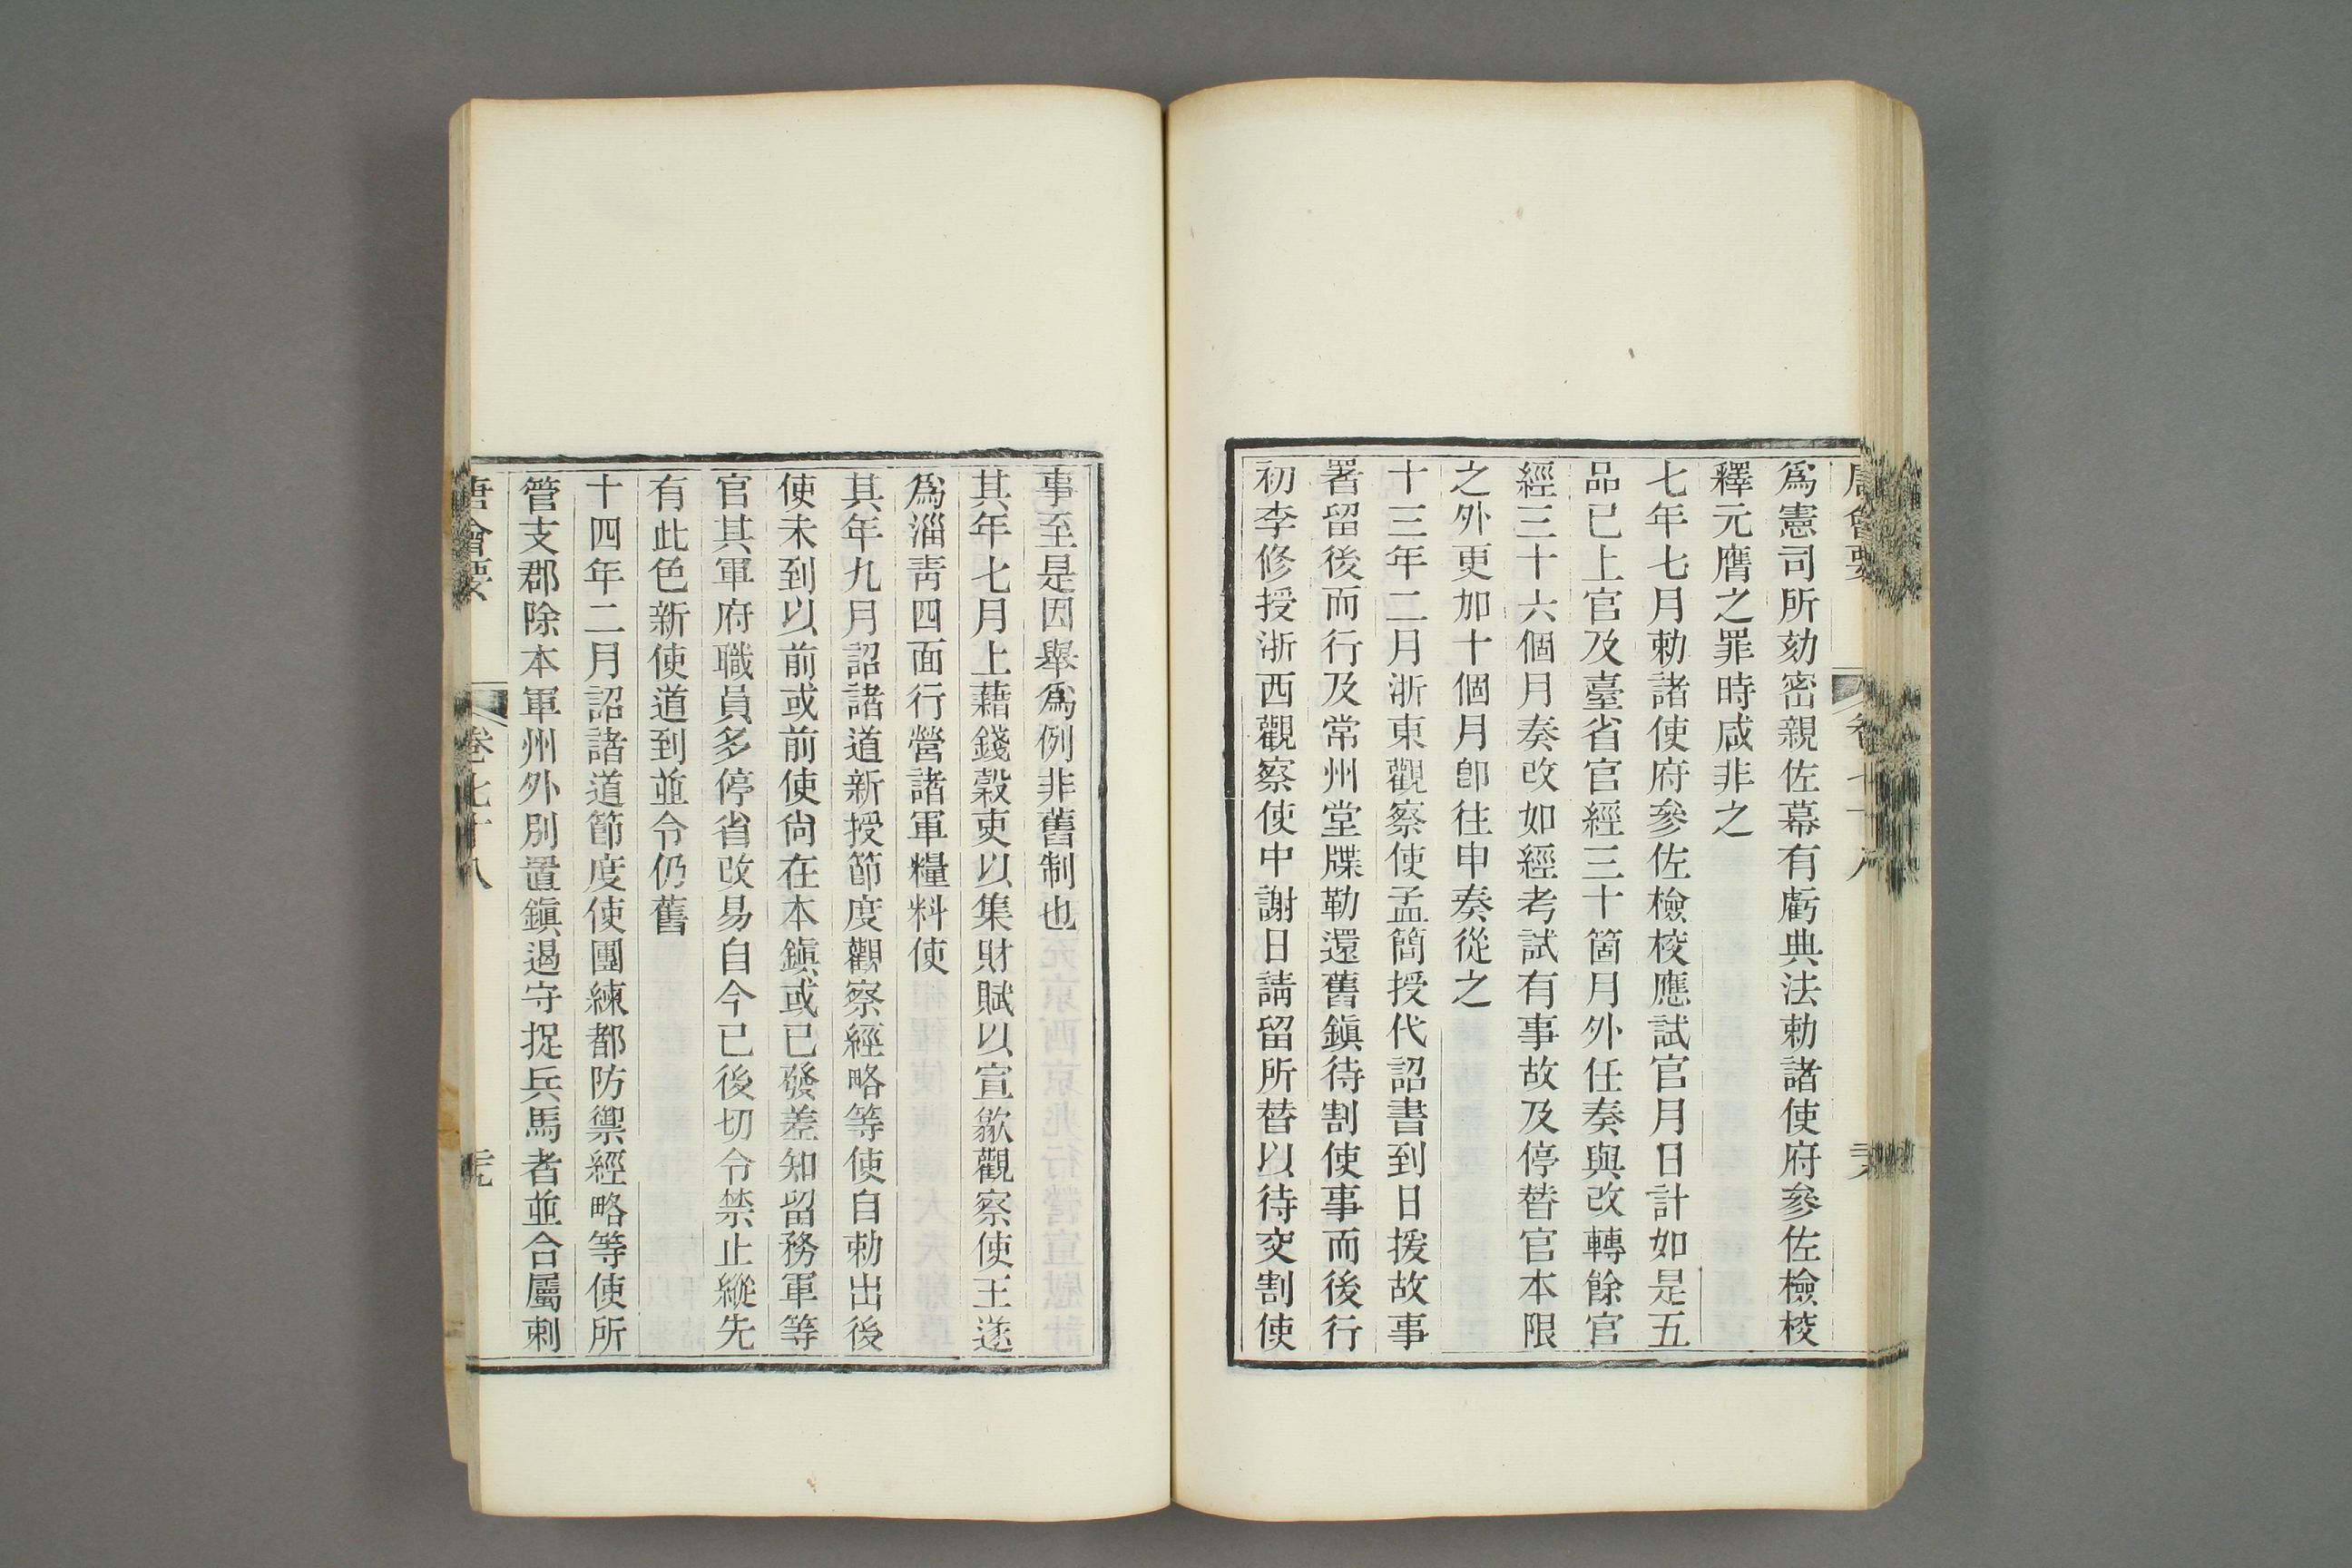 唐會要 卷七十八 天
爲憲司所劾密親佐幕有虧典法勅諸使府參佐檢校
釋元膺之罪時咸非之
七年七月勅諸使府參佐檢校應試官月日計如是五
品已上官及臺省官經三十箇月外任奏與改轉餘官
經三十六個月奏改如經考試有事故及停替官本限
之外更加十個月卽往申奏從之
十三年二月浙東觀察使孟簡授代詔書到日援故事
署留後而行及常州堂牒勒還舊鎭待割使事而後行
初李修授浙西觀察使中謝日請留所替以待交割使
事至是因舉爲例非舊制也
其年七月上藉錢穀吏以集財賦以宣歙觀察使王遂
爲淄靑四面行營諸軍糧料使
其年九月詔諸道新授節度觀察經略等使自勅出後
使未到以前或前使尙在本鎭或已發差知留務軍等
官其軍府職員多停省改易自今已後切令禁止縱先
有此色新使道到並令仍舊
十四年二月詔諸道節度使團練都防禦經略等使所
管支郡除本軍州外別置鎭遏守捉兵馬者並合屬刺
唐會要 卷七十八